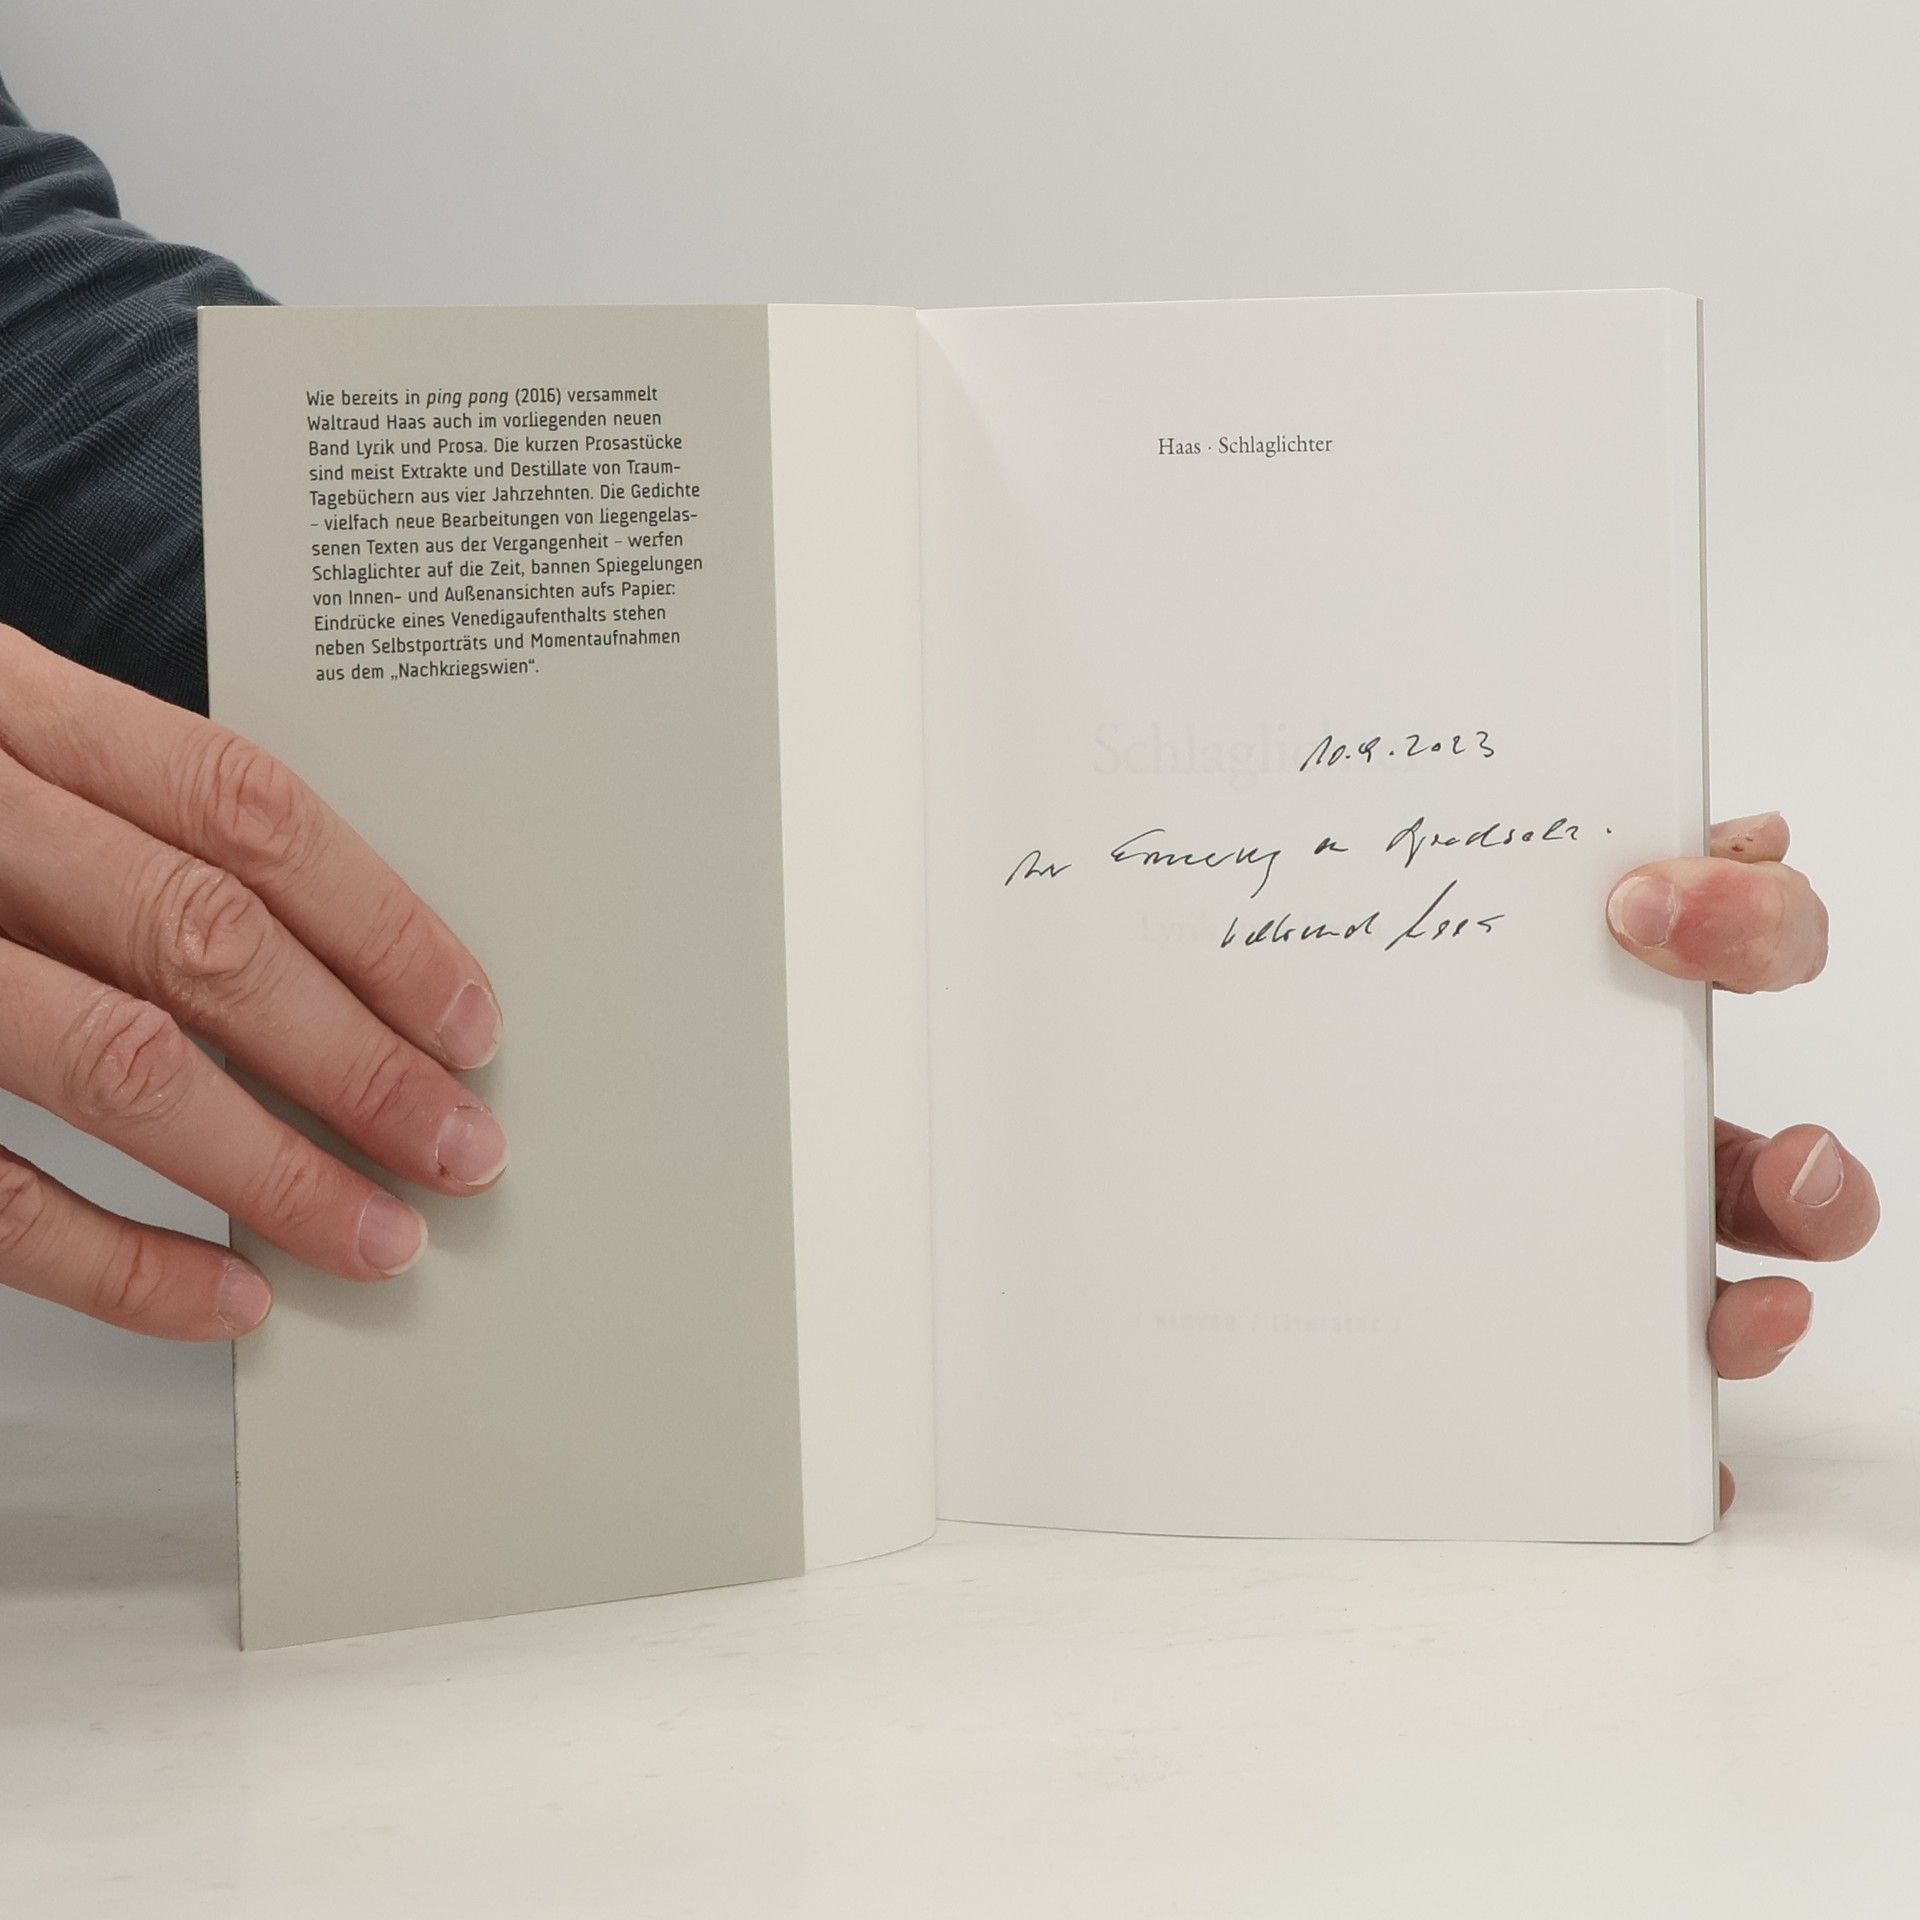 Wie bereits in ping pong (2016) versammelt
Waltraud Haas auch im vorliegenden neuen
Band Lyrik und Prosa. Die kurzen Prosastücke
sind meist Extrakte und Destillate von Traum-
Tagebüchern aus vier Jahrzehnten. Die Gedichte
– vielfach neue Bearbeitungen von liegengelas-
senen Texten aus der Vergangenheit – werfen
Schlaglichter auf die Zeit, bannen Spiegelungen
von Innen- und Außenansichten aufs Papier:
Eindrücke eines Venedigaufenthalts stehen
neben Selbstporträts und Momentaufnahmen
aus dem „Nachkriegswien“.
Haas · Schlaglichter
Schlaglichter
10.9.2023
Zur Erinnerung an
Waltraud Haas